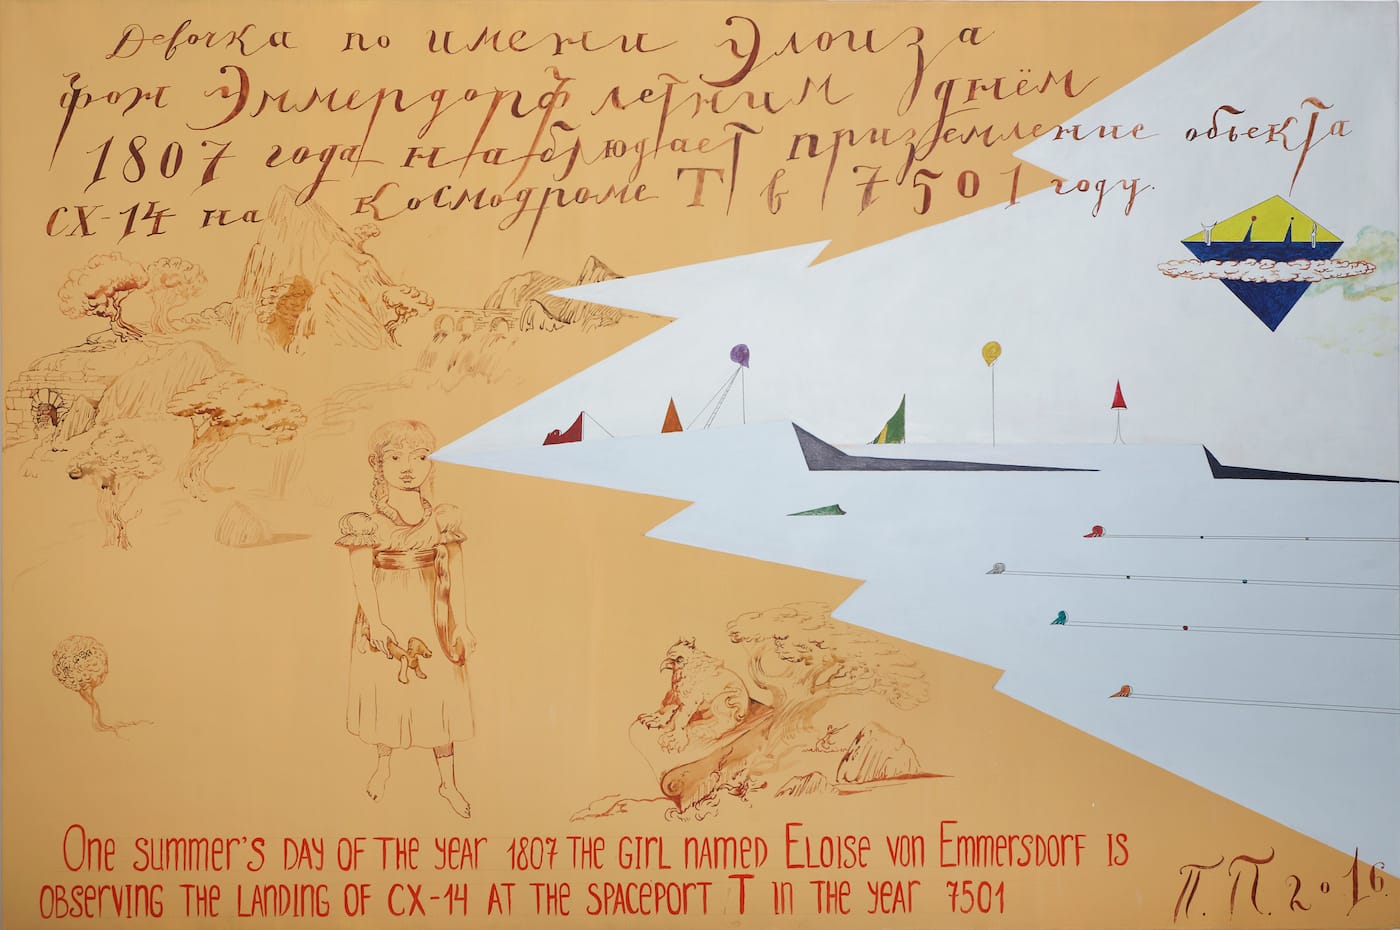 Девочка по имени Элоиза
фон Эммердорф летним днём
1807 года наблюдает приземление объекта
СХ-14 на Космодроме Т в 7501 году.
One summer's day of the year 1807 the girl named Eloise von Emmersdorf is
observing the landing of CX-14 at the spaceport T in the year 7501
П.П. 2016.